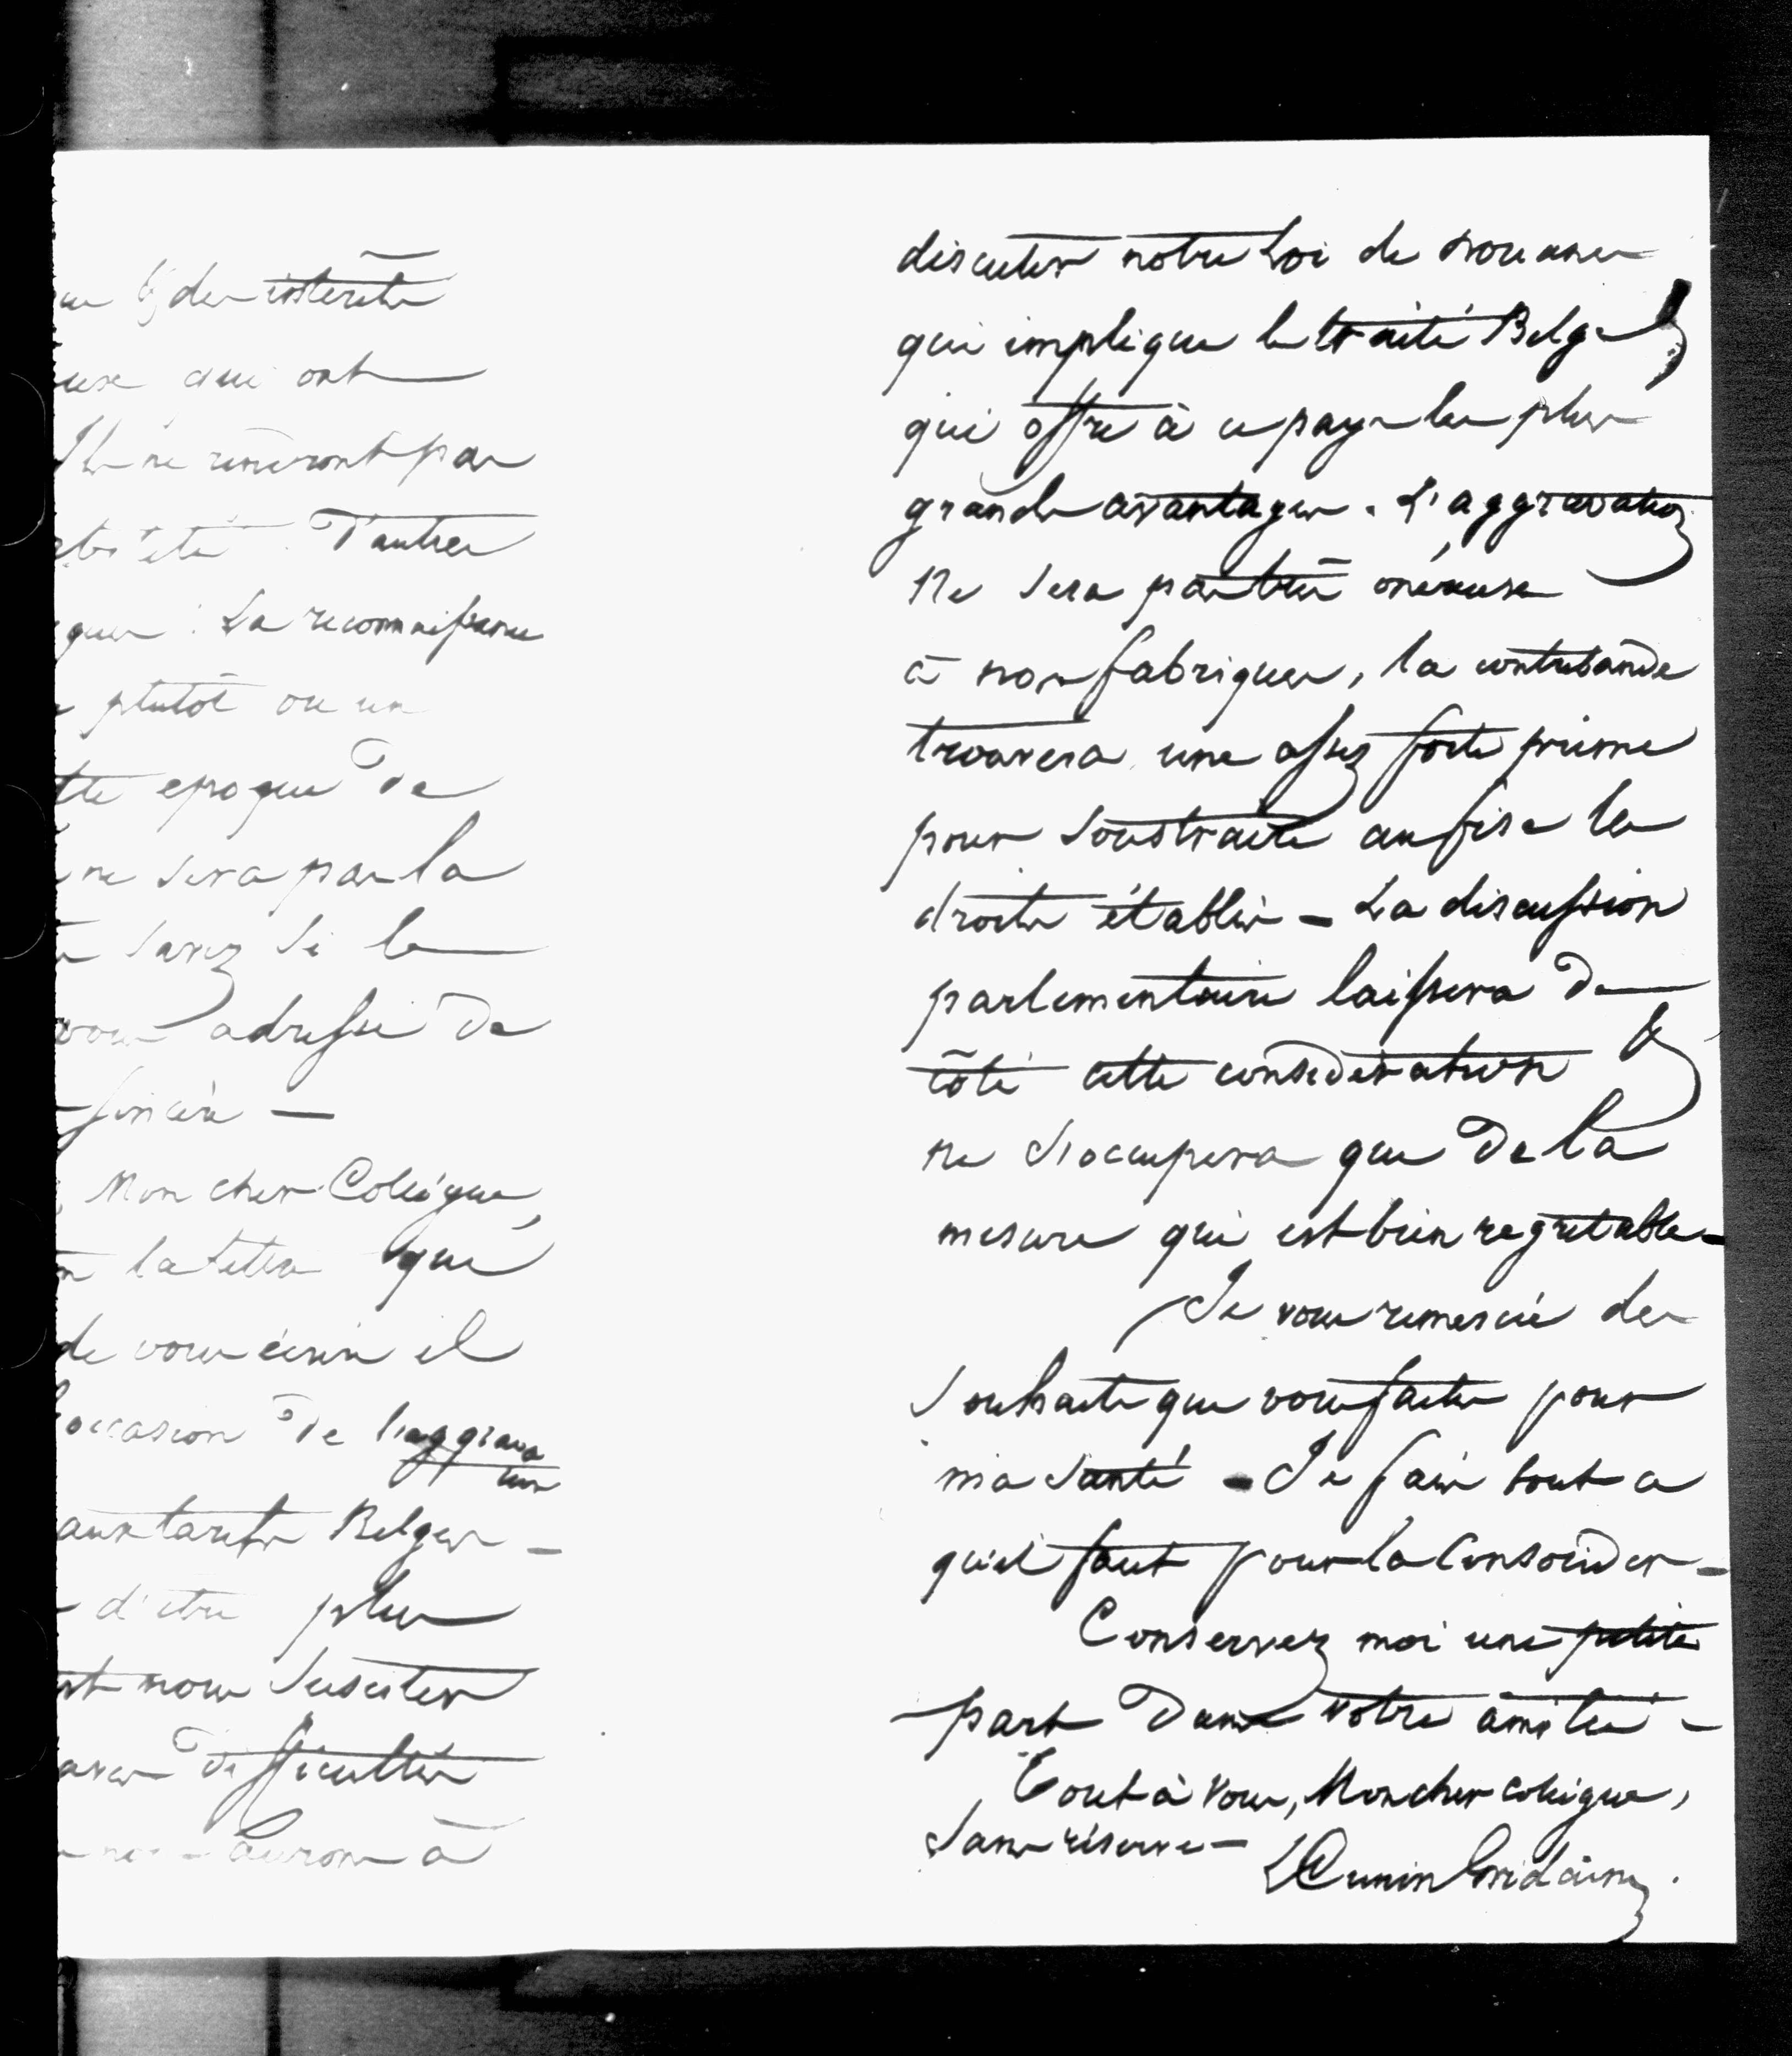 & des intérêts
qui ont
Ils ne renieront pas
été. D'autres
La reconnaissance
plutôt ou un
époque de
ne sera pas la
savez si le
vous adresse de
sincère —
Mon cher Collégue,
la lettre que
de vous écrire il
occasion de l'aggrava
tion
aux tarifs Belges —
d'être plus
nous susciter
difficultés
aurons à
discuter notre Loi de Douanes
qui implique le traité Belge &
qui offre à ce pays les plus
grands avantages. L'aggravation
ne sera pas très onéreuse
à nos fabriques, la contrebande
trouvera une assez forte prime
pour soustraire au fisc les
droits établis — La discussion
parlementaire laissera de
côté cette considération &
ne s'occupera que de la
mesure qui est bien regretable —
Je vous remercie des
souhaits que vous faites pour
ma santé — Je fais tout ce
qu'il faut pour la Consolider —
Conservez moi une petite
part dans votre amitié —
Tout à vous, Mon cher collégue,
sans réserve —
LCunin Gridaine.